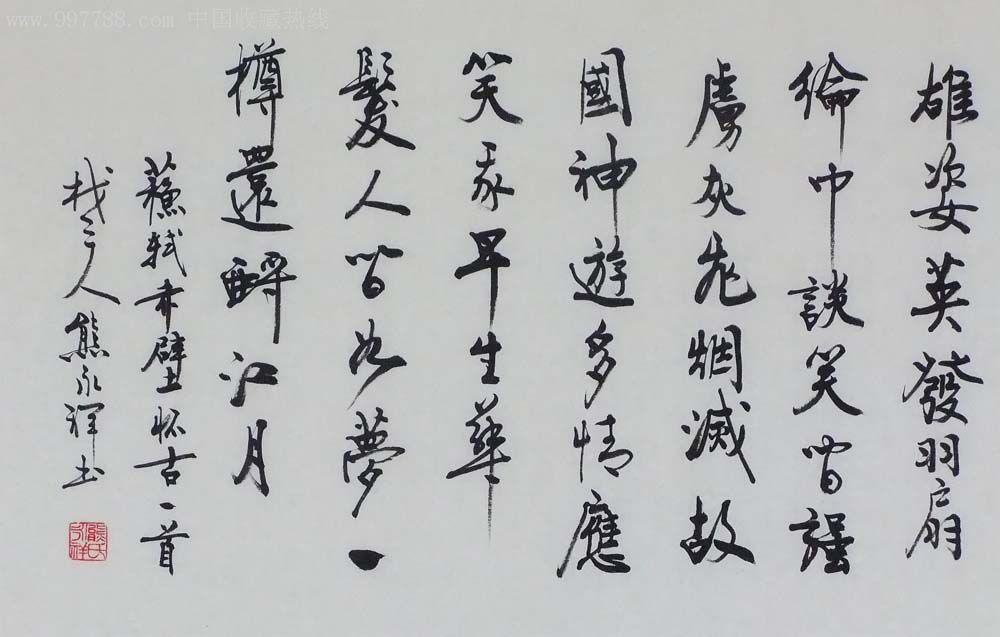 www.997788.com 中国收藏热线
雄姿英發羽扇
綸巾談笑間強
虜灰飛烟滅故
國神遊多情應
笑我早生華
髮人間如夢一
樽還酹江月
蘇軾赤壁怀古一首
人熊永祥书